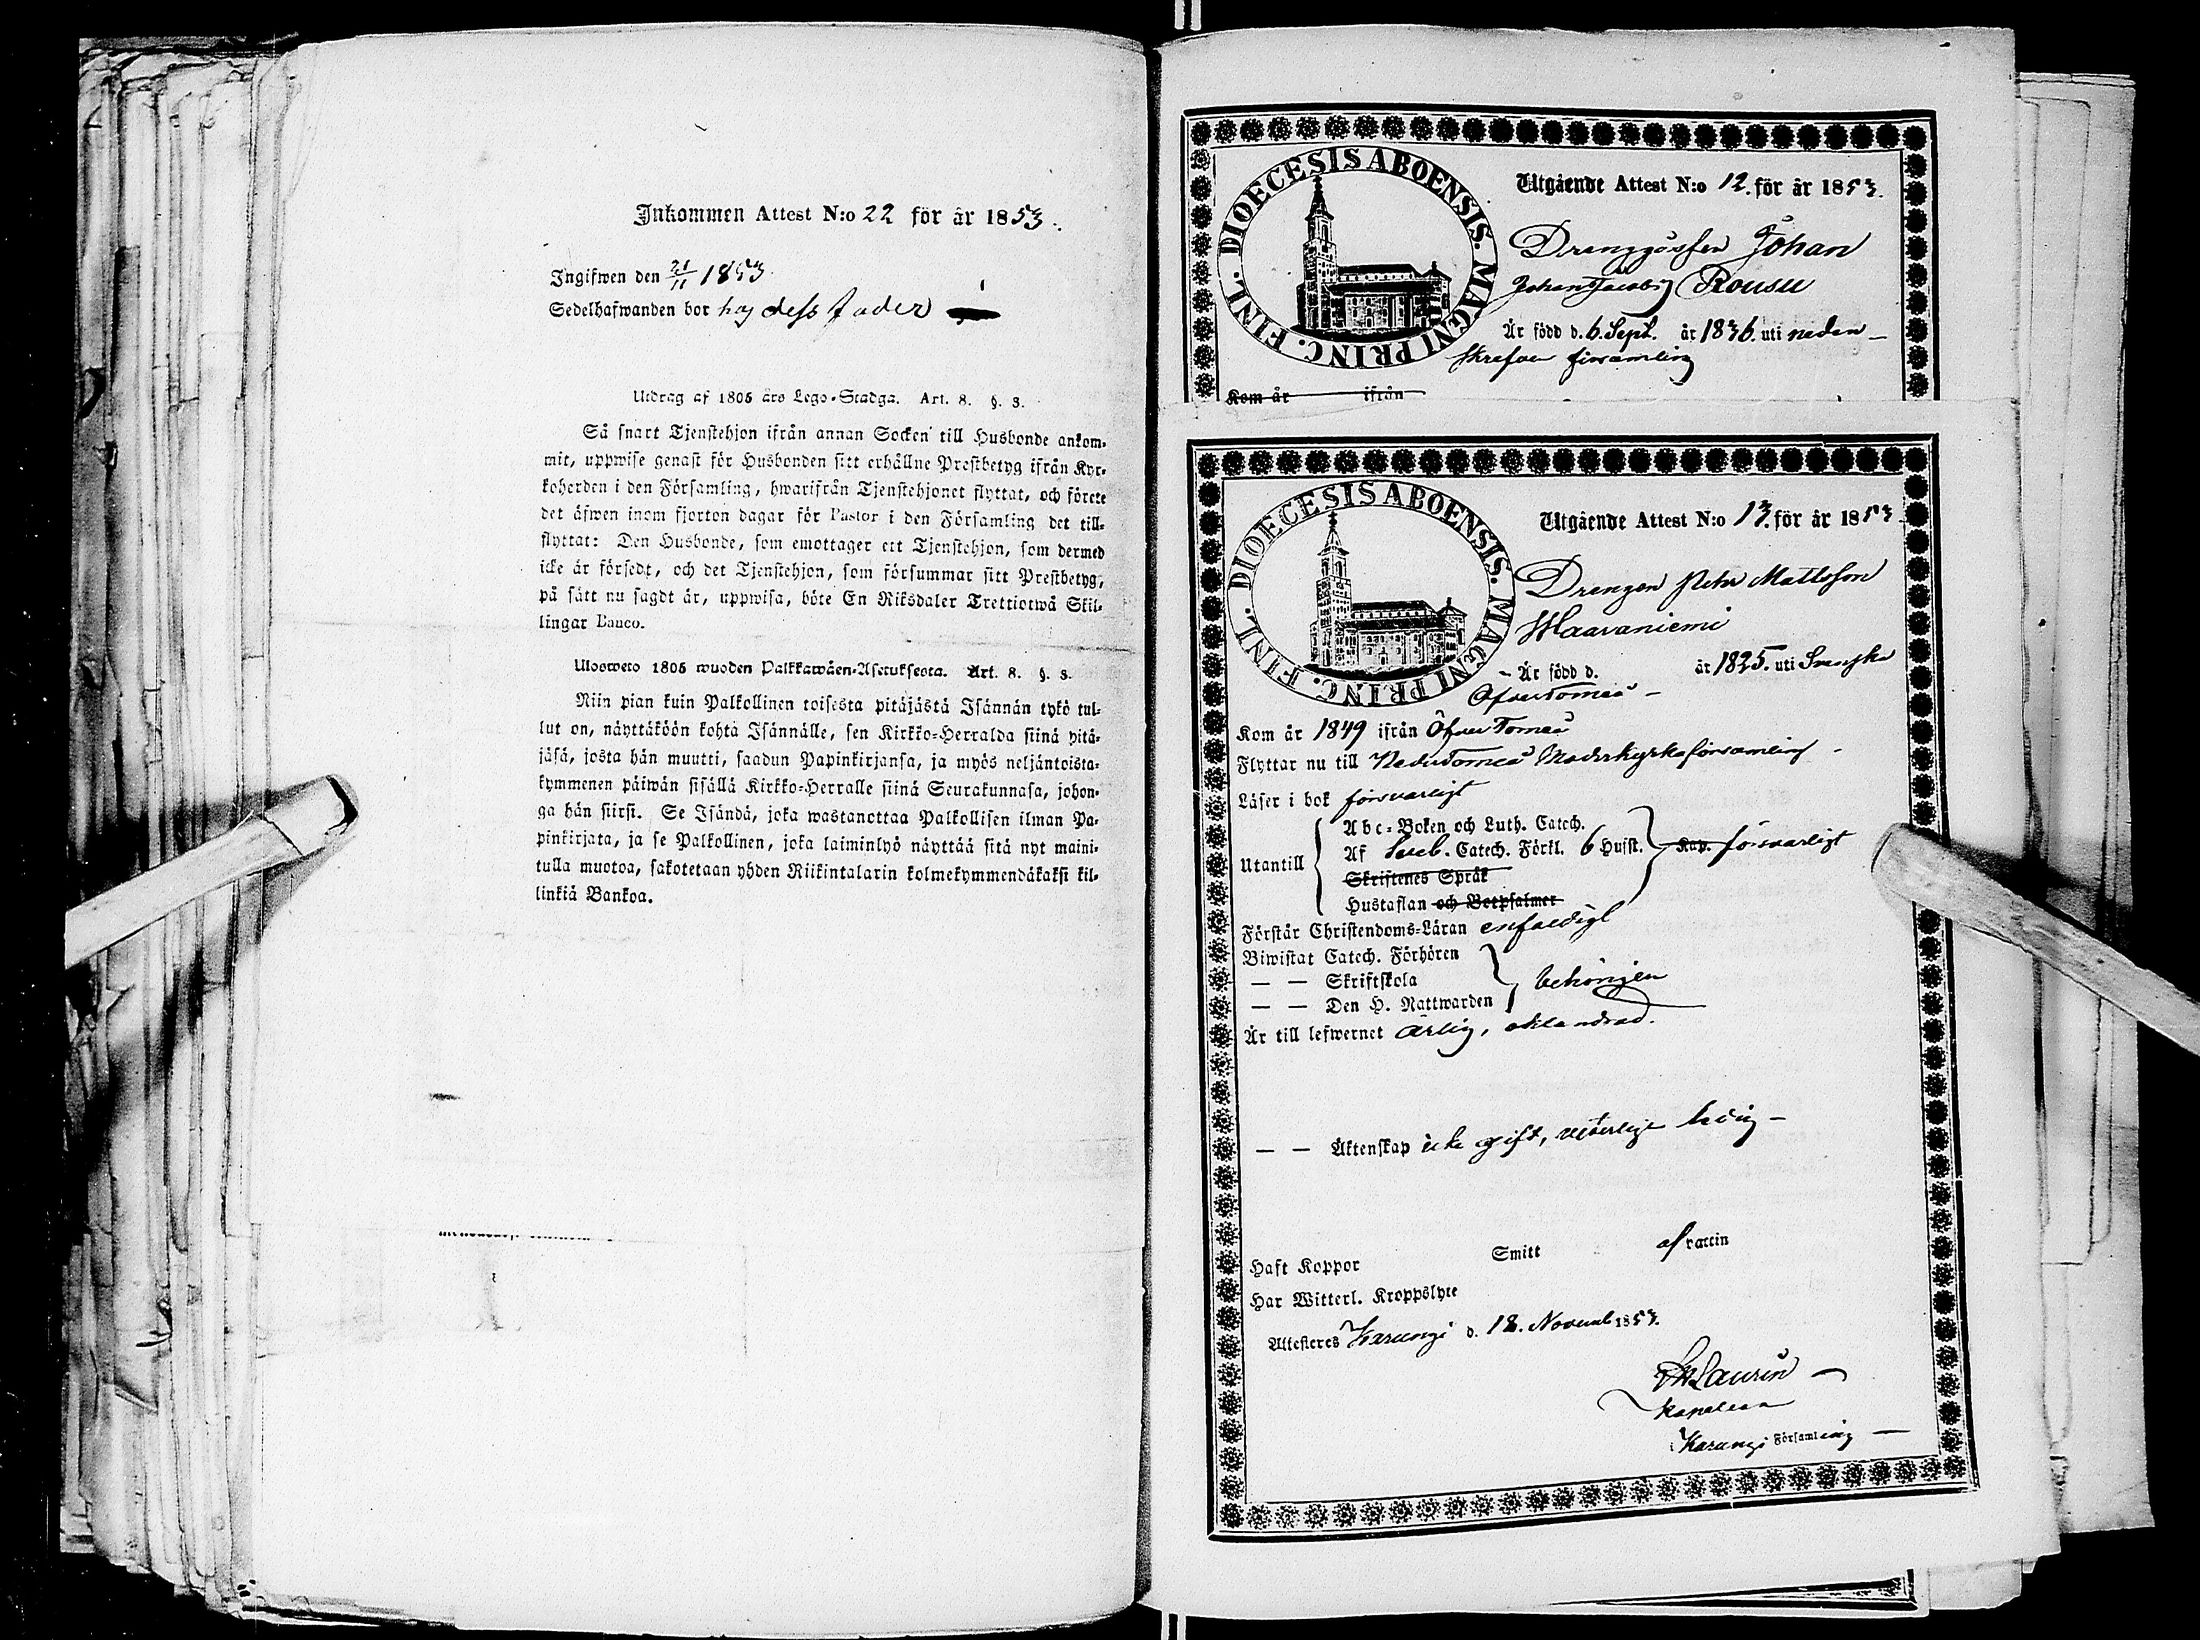 Inkommen Attest N:o 22 för år 1853.
Ingifwen den 21/11 1853.
Sedelhafwanden bor hos dess fader
Utdrag af 1805 års Lego-Stadga. Art. 8. §. 3.
Så snart Tjenstehjon ifrån annan Socken till Husbonde ankom-
mit, uppwise genast för Husbonden sitt erhållne Prestbetyg ifrån Kyr-
koherden i den Församling, hwarifrån Tjenstehjonet flyttat, och förete
det äfwen inom fjorton dagar för Pastor i den Församling det till-
flyttat: Den Husbonde, som emottager ett Tjenstehjon, som dermed
icke är försedt, och det Tjenstehjon, som försummar sitt Prestbetyg,
på sätt nu sagdt är, uppwisa, böte En Riksdaler Trettiotwå Skil-
lingar Banco.
Ulosweto 1805 wuoden Palkkawäen-Asetuksesta. Art. 8. §. 3.
Niin pian kuin Palkollinen toisesta pitäjästä Isännän tykö tul-
lut on, näyttäköön kohta Isännälle, sen Kirkko-Herralda siinä pitä-
jäsä, josta hän muutti, saadun Papinkirjansa, ja myös neljäntoista-
kymmenen päiwän sisällä Kirkko-Herralle siinä Seurakunnasa, johon-
ga hän siirsi. Se Isändä, joka wastanottaa Palkollisen ilman Pa-
pinkirjata, ja se Palkollinen, joka laiminlyö näyttää sitä nyt maini-
tulla muotoa, sakotetaan yhden Riikintalarin kolmekymmendäkaksi kil-
linkiä Bankoa.
DIOECESIS ABOENSIS. MAGNI PRINC. FINL.
Utgående Attest N:o 12. för år 1853.
Drenggåssen Johan
Johan Jacobs Rousu
Är född d. 6. Sept. år 1836. uti neden-
skrefne församling
Kom år ifrån
DIOECESIS ABOENSIS. MAGNI PRINC. FINL.
Utgående Attest N:o 13. för år 1853
Drengen Petr Mattsson
Maaraniemi
- Är född d. år 1825. uti Svenska
ÖfverTorneå -
Kom år 1849 ifrån ÖfverTorneå
Flyttar nu till NederTorneå Moderkyrkoförsamling -
Läser i bok försvarligt
Abc-Boken och Luth. Catech.
Utantill Af Sveb. Catech. Förkl. 6 Hufst. Kap. försvarligt
Skriftenes Språk
Hustaflan och Botpsalmer
Förstår Christendoms-Läran enfaldigt
Biwistat Catech. Förhören
— — Skriftskola behörigen
— — Den H. Nattwarden
Är till lefwernet ärlig, oklandrad.
— — Äktenskap icke gift, veterligt ledig -
Haft Koppor Smitt af vaccin
Har Witterl. Kroppslyte
Attesteres Karungi d. 18. Novemb 1853.
Laurin -
Kapellan
i Karungi Församling -